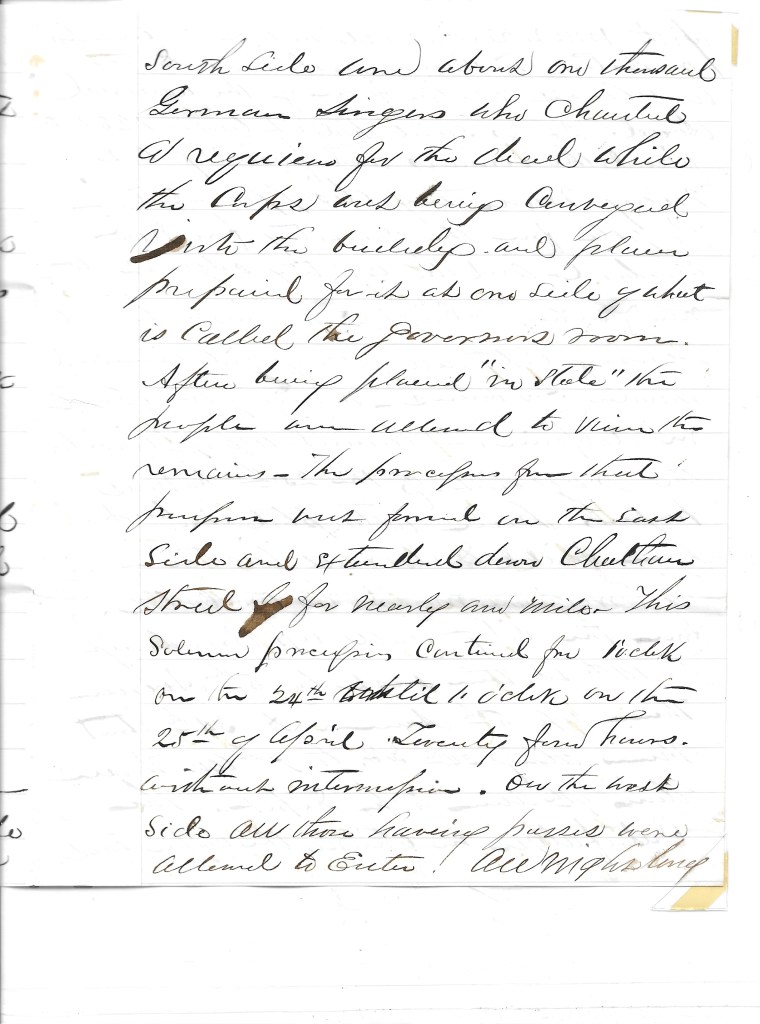 South Side and about one thousand
German Singers who Chanted
A requiem for the dead while
the Corps was being Conveyed
into the building and place
prepaired for it at one side of what
is Called the Governors room.
After being placed "in State" the
people were allowed to view the
remains - The procession for that
purpose was formed on the East
Side and extended down Chatham
Street for nearly one mile - This
Solemn procession continued from 1 oclok
on the 24th until 1 oclok on the
25th of April Twenty four hours.
without intermission. On the west
Side all those having passes were
allowed to Enter! All night long